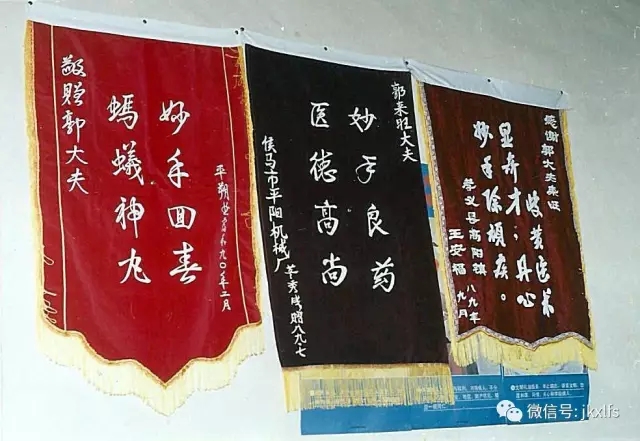 敬赠郭大夫
妙手回春
螞蟻神丸
九〇年二月
郭来旺大夫
妙手良药
医德高尚
侯马市平阳机械厂
赠八九.七
感谢郭大夫
岐黄
显奇才,丹心
妙手除顽疾。
孝义县高阳镇
王安福
八九年
九月
微信号: jkxlfs